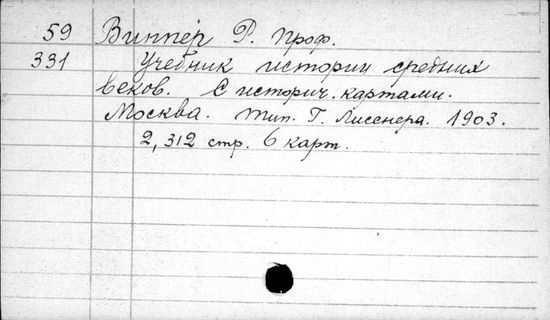 59 Виппер Р. проф.
331 Учебник истории средних
веков. С историч. картами.
Москва. Тип. Г. Лисснера. 1903.
2, 312 стр. 6 карт.